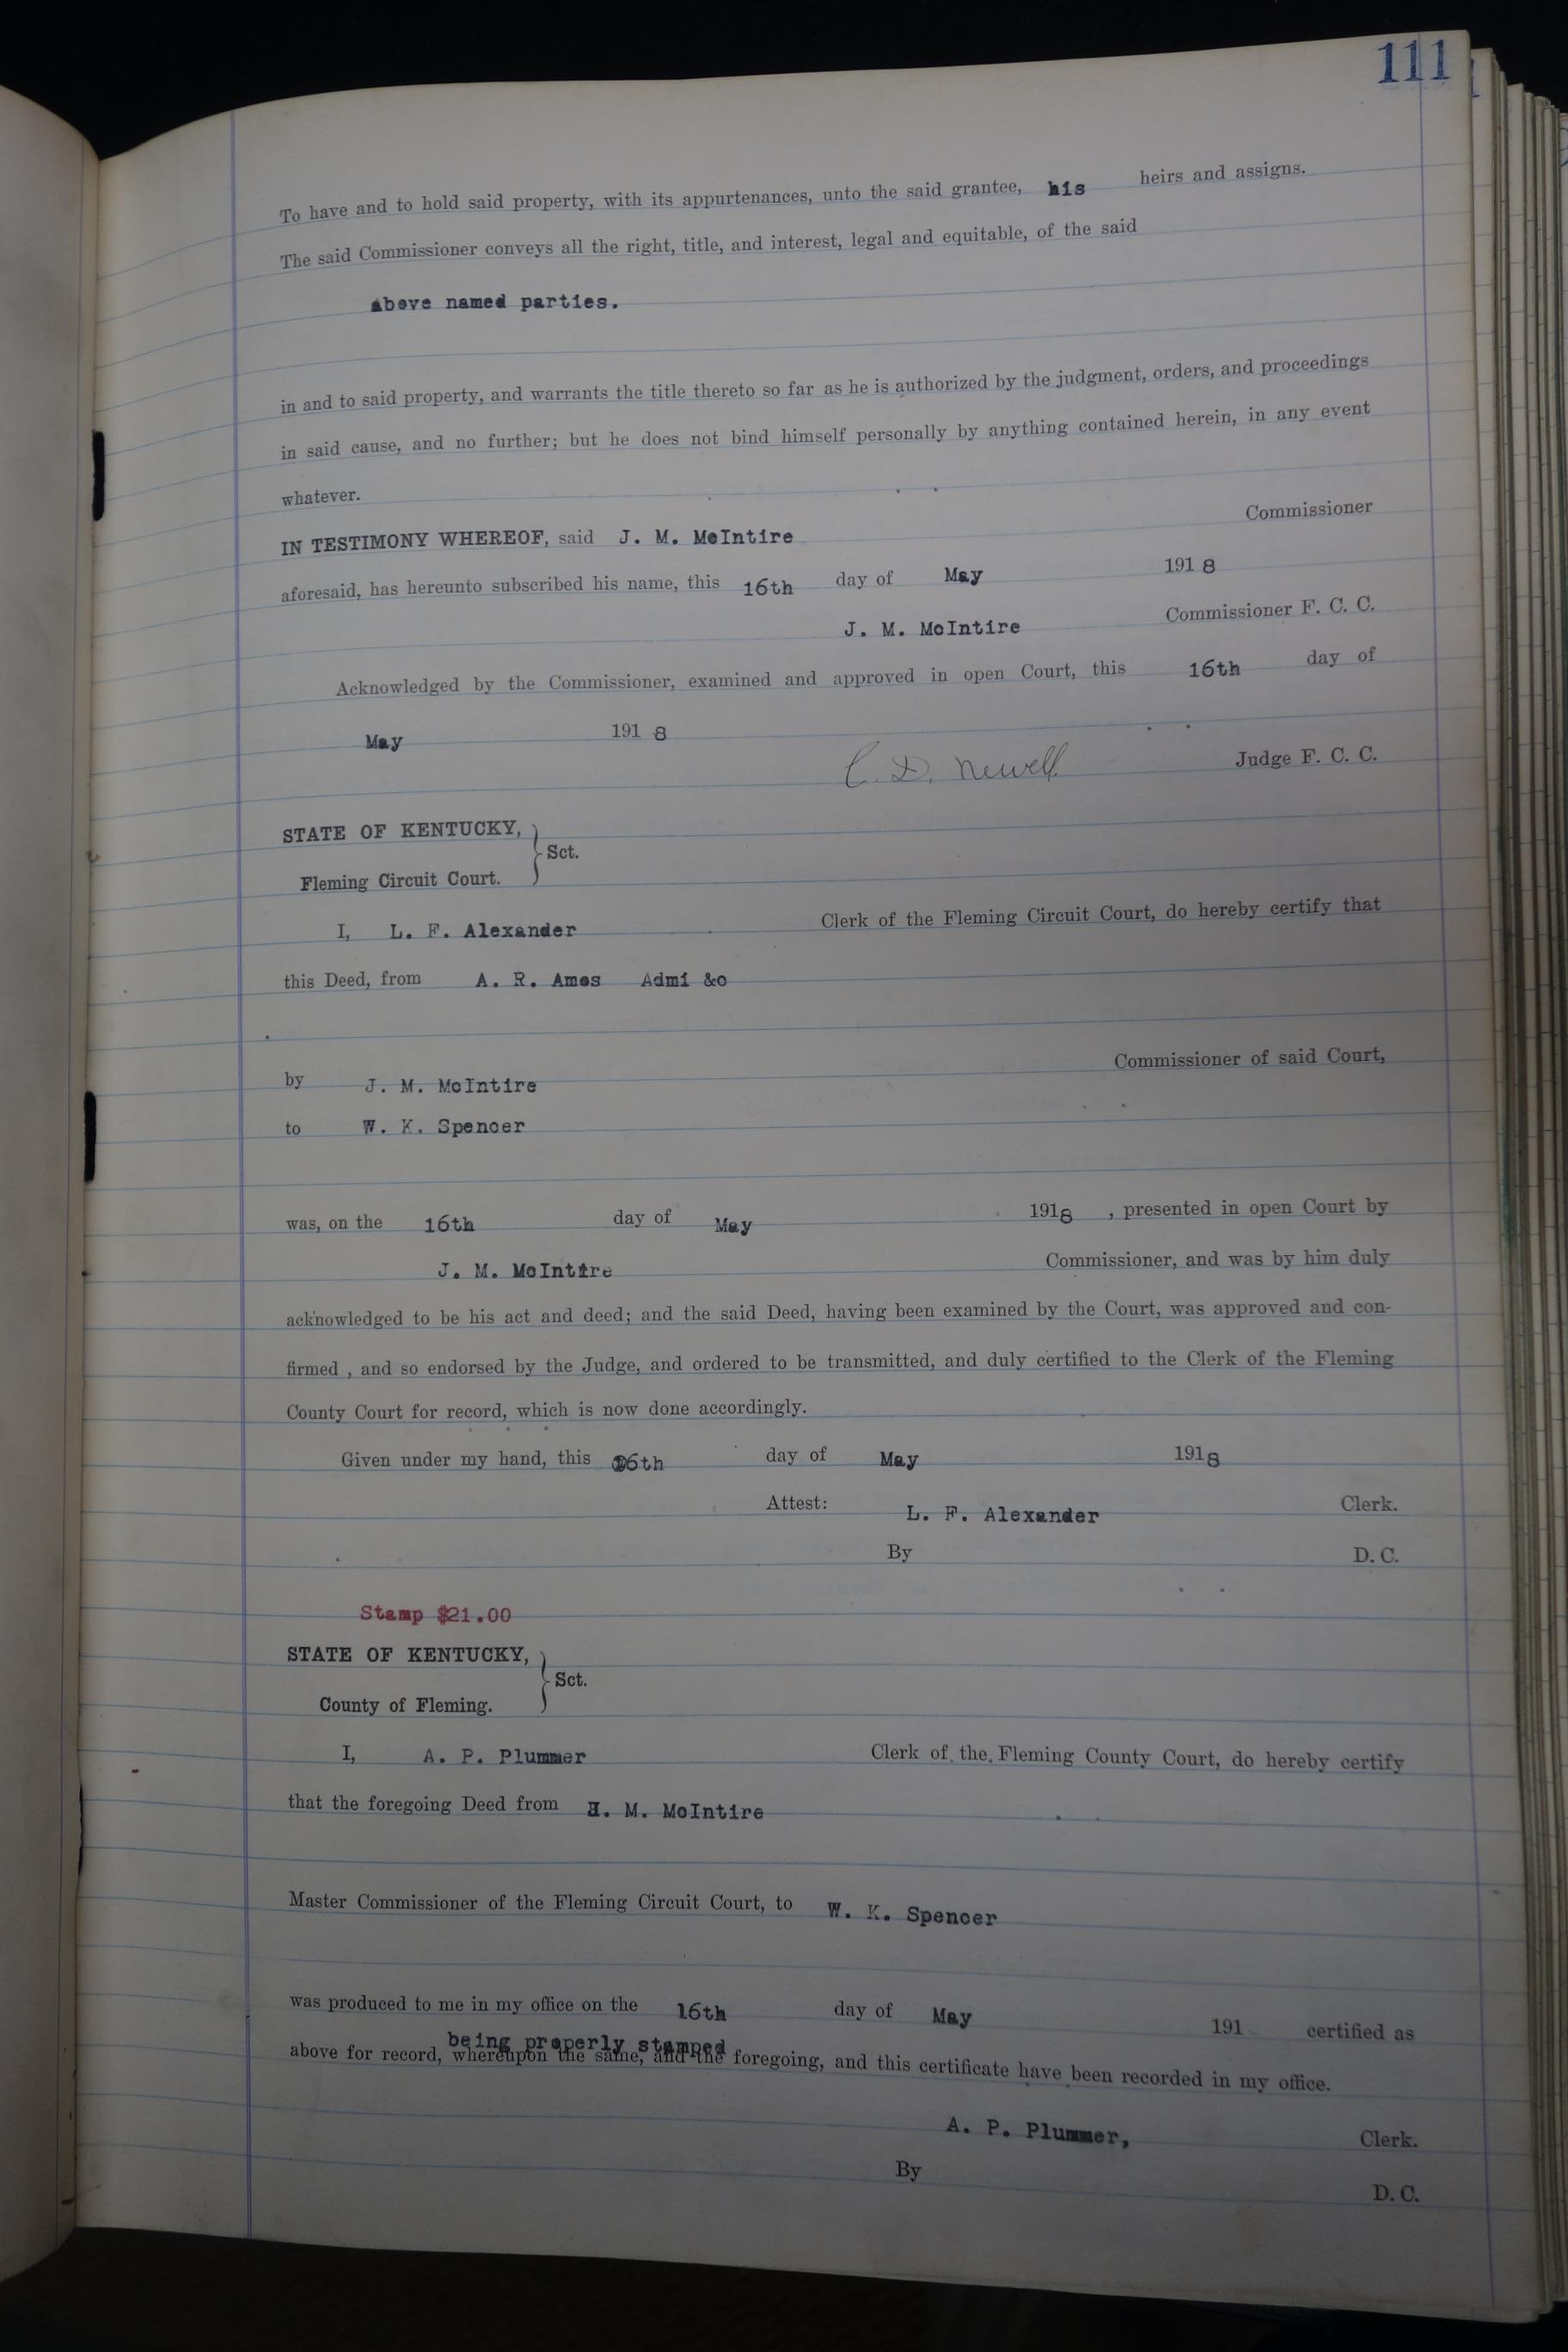 111
To have and to hold said property, with its appurtenances, unto the said grantee, his heirs and assigns.
The said Commissioner conveys all the right, title, and interest, legal and equitable, of the said
above named parties.
in and to said property, and warrants the title thereto so far as he is authorized by the judgment, orders, and proceedings
in said cause, and no further; but he does not bind himself personally by anything contained herein, in any event
whatever.
IN TESTIMONY WHEREOF, said J. M. McIntire Commissioner
aforesaid, has hereunto subscribed his name, this 16th day of May 1918
J. M. McIntire Commissioner F. C. C.
Acknowledged by the Commissioner, examined and approved in open Court, this 16th day of
May 1918
C. D. Newell Judge F. C. C.
STATE OF KENTUCKY,
Sct.
Fleming Circuit Court.
I, L. F. Alexander Clerk of the Fleming Circuit Court, do hereby certify that
this Deed, from A. R. Ames Admi &c
Commissioner of said Court,
by J. M. McIntire
to W. K. Spencer
was, on the 16th day of May 1918 , presented in open Court by
J. M. McIntire Commissioner, and was by him duly
acknowledged to be his act and deed; and the said Deed, having been examined by the Court, was approved and con-
firmed , and so endorsed by the Judge, and ordered to be transmitted, and duly certified to the Clerk of the Fleming
County Court for record, which is now done accordingly.
Given under my hand, this 16th day of May 1918
Attest: L. F. Alexander Clerk.
By D. C.
Stamp $21.00
STATE OF KENTUCKY,
Sct.
County of Fleming.
I, A. P. Plummer Clerk of the Fleming County Court, do hereby certify
that the foregoing Deed from J. M. McIntire
Master Commissioner of the Fleming Circuit Court, to W. K. Spencer
was produced to me in my office on the 16th day of May 191 certified as
being properly stamped
above for record, whereupon the same, and the foregoing, and this certificate have been recorded in my office.
A. P. Plummer, Clerk.
By
D. C.